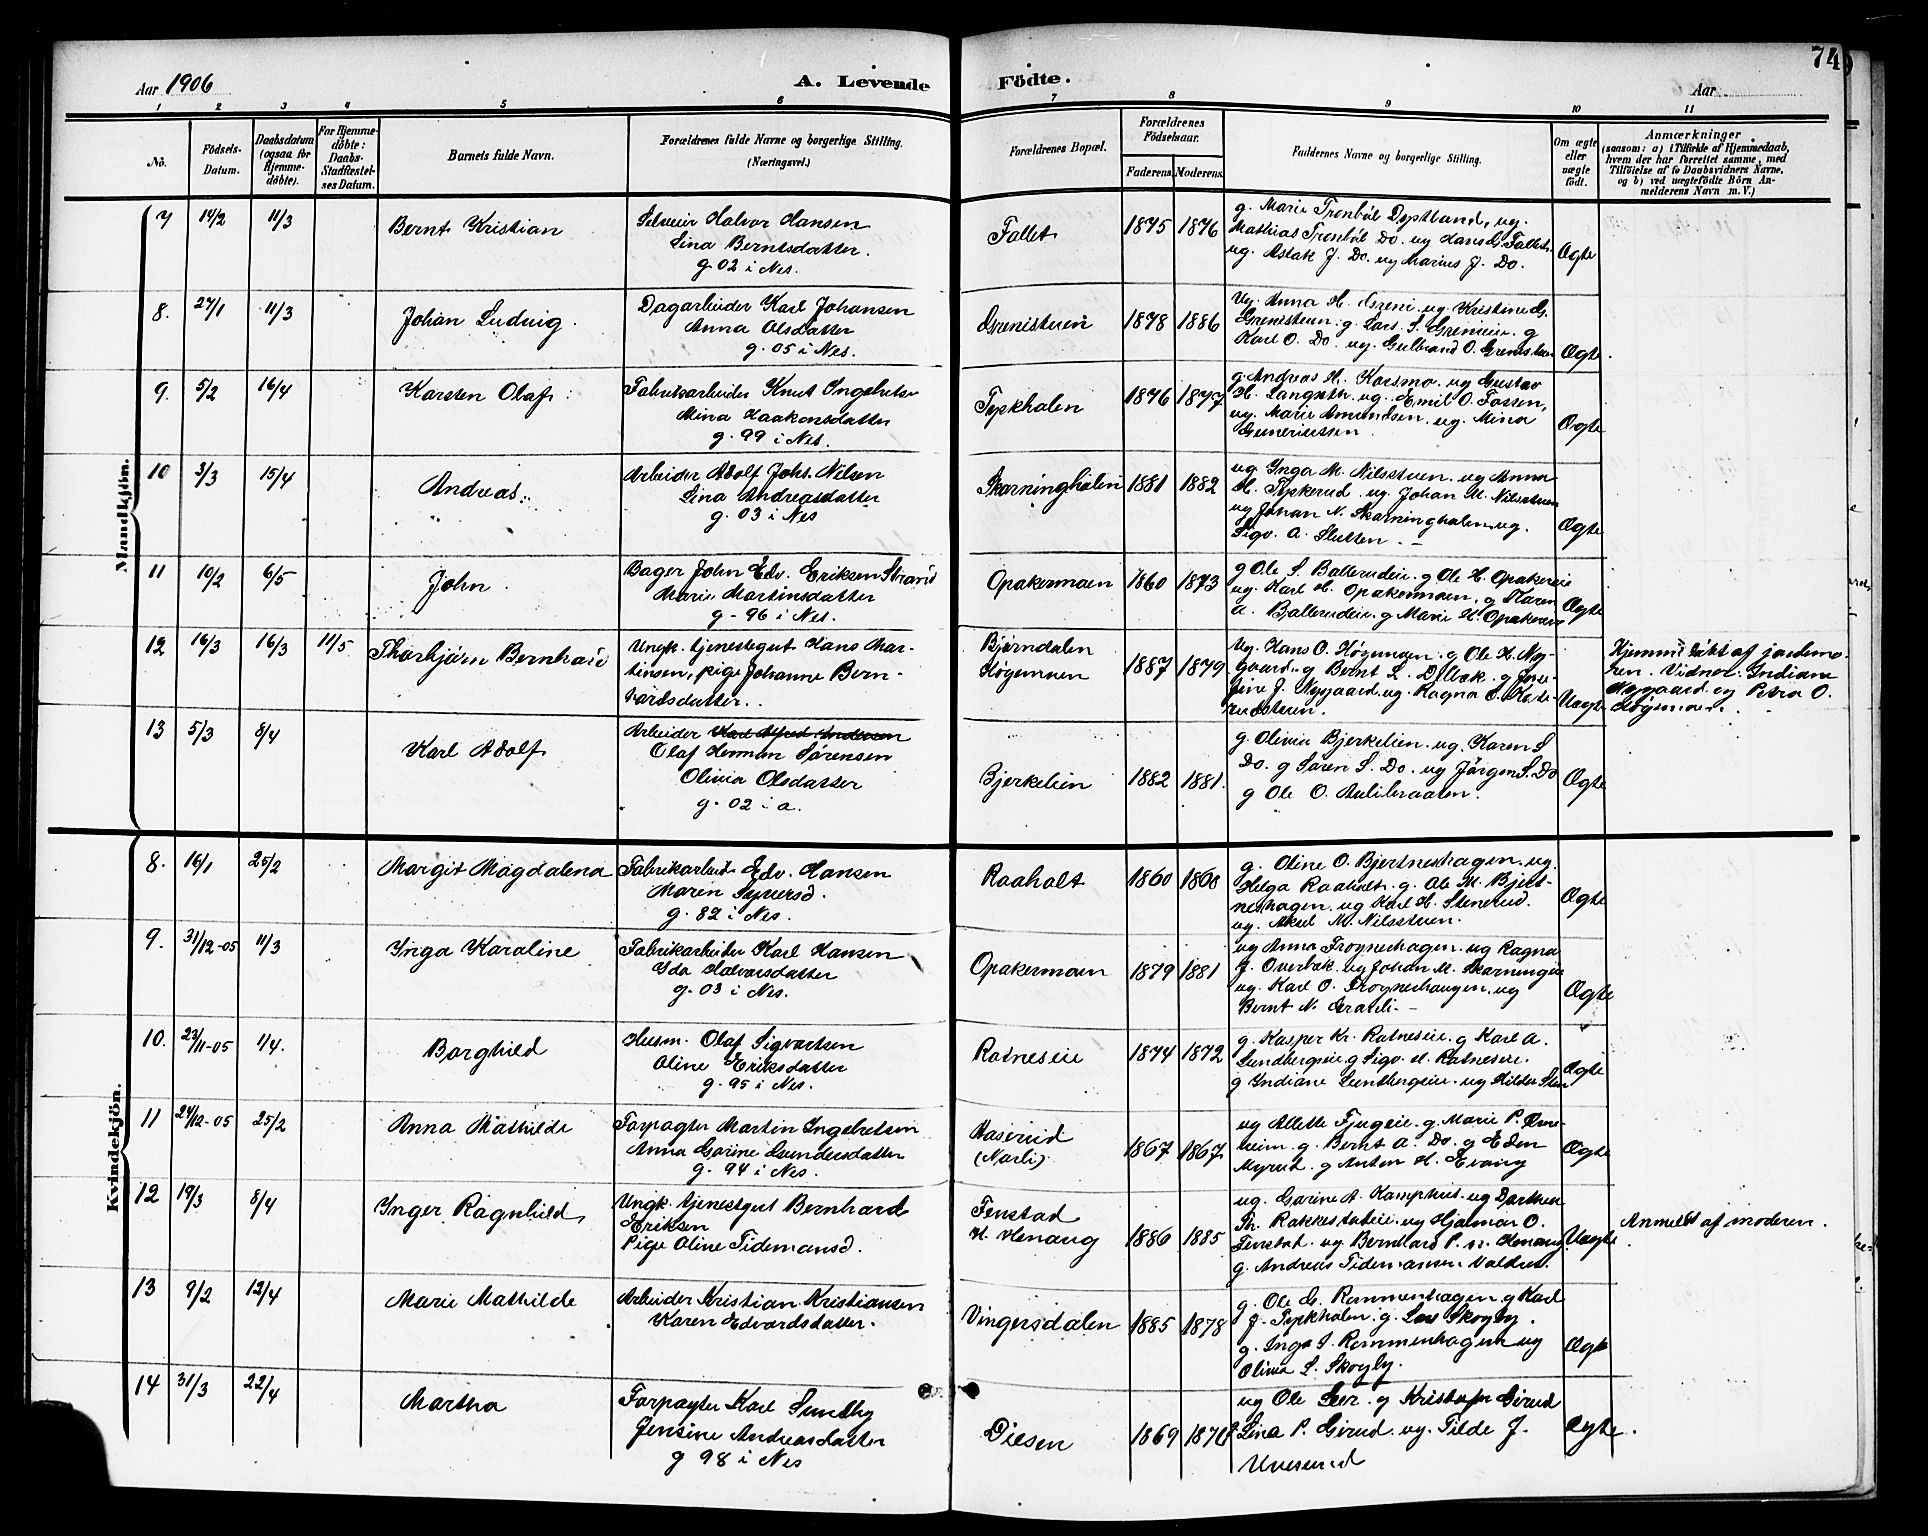 74
Aar 1906
A. Levende Födte.
Aar
1 2 3 4 5 6 7 8 9 10 11
No.
Födsels-
Datum.
Daabsdatum
(ogsaa for
Hjemme-
döbte).
For Hjemme-
döbte:
Daabs-
Stadfæstel-
ses Datum.
Barnets fulde Navn.
Forældrenes fulde Navne og borgerlige Stilling.
(Næringsvei.)
Forældrenes Bopæl.
Forældrenes
Födselsaar.
Faderens. Moderens.
Faddernes Navne og borgerlige Stilling.
Om ægte
eller
uægte
födt.
Anmærkninger
(saasom: a) i Tilfælde af Hjemmedaab,
hvem der har forrettet samme, med
Tilföielse af to Daabsvidners Navne,
og b) ved uægtefödte Börn An-
melderens Navn m. V.)
Mandkjön.
7 14/2 11/3 Bernt Kristian
Halvor Hansen
Lina Berntsdatter.
g. 02 i Nes.
Fallet 1875 1876
g. Marie Tronböl Dystland, ug.
Mathias Tronböl Do. ug Hans G. Fallet.
ug. Aslak J. Do. ug Marius J. Do.
Ægte
8. 27/1 11/3 Johan Ludvig.
Dagarbeider Karl Johansen
Anna Olsdatter
g. 05 i Nes.
Grenistuen 1878 1886
Ug. Anna H. Greni. ug Kristine G.
Grenistuen. g. Lars S. Grenieie. g
Karl O. Do. ug. Gulbrand O. Grenistuen
Ægte.
9. 5/2 16/4 Karsten Olaf
Fabrikarbeider Knut Ingebretsen
Mina Haakonsdatter
g. 99 i Nes.
Tyskhalen 1876 1877
g. Andreas H. Korsmo. ug Gustav
H. Langseth. ug. Emil O. Fossen,
ug. Marie Amundsen. ug. Mina
Guneriussen.
Ægte
10 3/3 15/4 Andreas.
Arbeider Adolf Johs. Nilsen
Lina Andreasdatter
g. 03 i Nes
Skarninghalen 1881 1882
ug Inga M. Nilsstuen. ug Anna
H. Tyskerud. ug. Johan M. Nilsstuen
ug Johan N. Skarninghalen. ug.
Sigv. A. Sletten.
Ægte
11 10/2 6/5 John.
Bager John Edv. Eriksen Strand
Marie Martinsdatter
g. 96 i Nes.
Opakermoen 1860 1873
g Ole S. Ballerudeie. g Ole H. Opakereie
ug. Karl H. Opakermoen, g Maren
A. Ballerudeie. g Marie H. Opakereie
Ægte
12 16/3 16/3 11/5 Thorbjörn Bernhard
Ungk. tjenestegut Hans Mar-
tinsen, pige Johanne Bern-
hardsdatter.
Bjørndalen
Høgemoen 1887 1879
Ug. Hans O. Høgemoen. g Ole H. Ny-
gaard. g Bernt L. Dælbæk. g Jose-
fine J. Nygaard. ug. Ragna
Uægte
Hjemmedöbt af jordemo-
ren. Vidner: Indiane
Nygaard og Petra O.
Høgemoen.
13 5/3 8/4 Karl Adolf
Arbeider Karl Alfred Andersen
Olaf Herman Sørensen
Olivia Olsdatter
g. 02 i a.
Bjerkelien 1882 1881.
g. Olivia Bjerkelien. ug. Karen S
Do. g Søren S. Do. ug Jörgen S. Do
g Ole O. Aulibraaten.
Ægte
Kvindekjön.
8. 16/1 25/2 Margit Magdalena
Fabrikarbeid. Edv. Hansen
Maren Syversd.
g. 82 i Nes.
Raaholt 1860 1860
g. Oline O. Bjertneshagen. ug.
Helga Raaholt. g. Ole M. Bjert-
neshagen. ug Karl H. Stenerud.
ug. Aksel M. Nilsstuen.
Ægte
9. 31/12-05 11/3 Inga Karoline
Fabrikarbeider Karl Hansen
Ida Halvorsdatter
g. 03 i Nes.
Opakermoen 1879 1881
ug Anna Frognerhagen. ug Ragna
J. Overbæk. ug Johan M. Skarningeie
ug. Karl O. Frognerhaugen. ug
Bernt N. Grasli.
Ægte
10. 23/11-05 1/4. Borghild
Husm. Olaf Sigvartsen
Oline Eriksdatter
g. 95 i Nes.
Ratneseie 1874 1872
g. Kasper Kr. Ratneseie. g Karl A.
Sundbergeie. g Sigv. M. Ratneseie.
g Indiane Sundbergeie. ug Hilda
Ægte
11 24/12-05 25/2 Anna Mathilde
Forpagter Martin Ingebretsen
Anna Gorine Gundersdatter
g. 94 i Nes.
Haserud
(Norli) 1867 1867
ug Allette Fjugeie. g. Marie P.
g. Bernt A. Do. g Eden
Myrud. g Anton H. Evang
Ægte
12 19/3 8/4 Inger Ragnhild
Ungk. tjenestgut Bernhard
Eriksen
Pige Oline Tidemansd.
Fenstad
N. Henaug 1886 1885
ug. Gorine A. Kamphus. ug Dorthea
Th. Rakkestadeie. ug Hjalmar O.
Fenstad. ug Bernhard P. N. Henaug.
g. Andreas Tidemansen Valdres.
Uægte
Anmeldt af moderen.
13 9/2 12/4 Marie Mathilde
Arbeider Kristian Kristiansen
Karen Edvardsdatter.
Vingersdalen 1885 1878
g. Ole G. Rommenhagen. g Karl
J. Tyskhalen. g. Lars Skogby.
g. Inga S. Rommenhagen ug
Olivia L. Skogby.
Ægte
14 31/3 22/4 Martha
Forpagter Karl Sundby
Jensine Andreasdatter
g 98 i Nes
Diesen 1869 1876
ug Ole Seer. g Kristofer Girud
Lina P. Girud. ug. Tilde J.
Uvesund
Ægte.